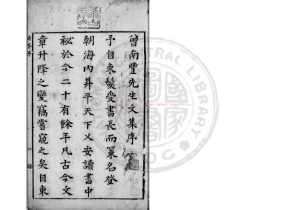 曾南豐先生文集序
予自束髮受書長而策名登
朝海內昇平天下乂安讀書中
祕於今二十有餘年凡古今文
章升降之變竊嘗窺之矣自東